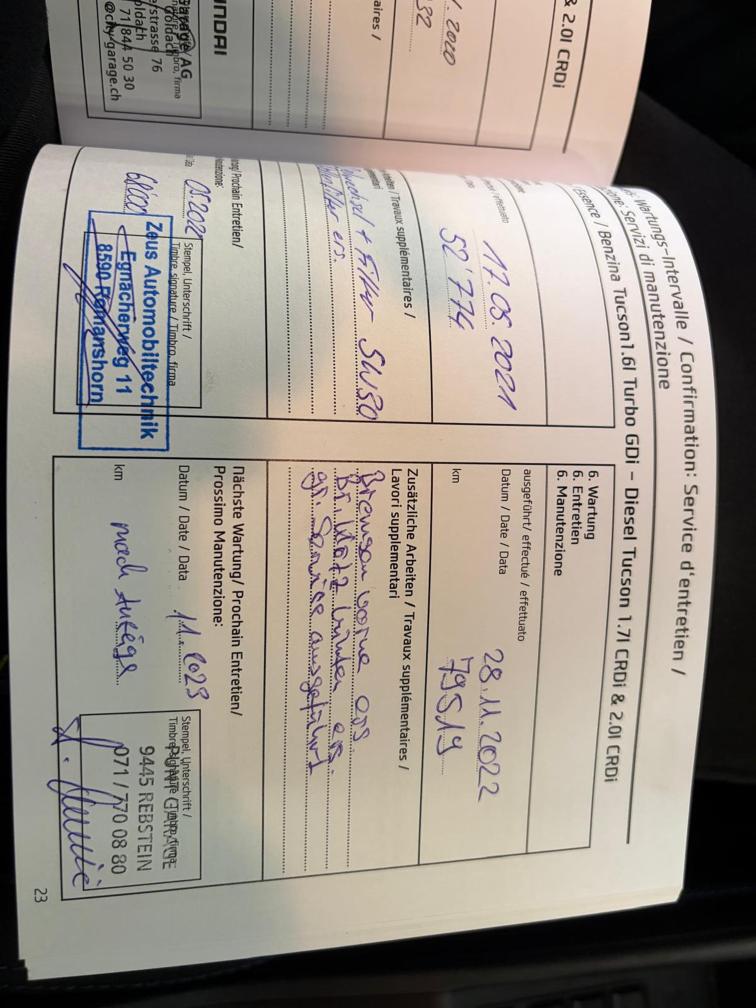 & 2.0l CRDi
2020
32
aires /
UNDAI
Garage AG
Goldach
strasse 76
71 844 50 30
@city-garage.ch
Wartungs-Intervalle / Confirmation: Service d'entretien /
Servizi di manutenzione
Essence / Benzina Tucson1.6l Turbo GDi – Diesel Tucson 1.7l CRDi & 2.0l CRDi
effettuato
17.05.2021
52'774
Travaux supplémentaires /
wechsel + Filter 5W30
ers.
Prochain Entretien/
05.2022
Stempel, Unterschrift /
Timbre, signature / Timbro, firma
Zeus Automobiltechnik
Egnacherweg 11
8590 Romanshorn
6. Wartung
6. Entretien
6. Manutenzione
ausgeführt/ effectué / effettuato
Datum / Date / Data 28.11.2022
km 79519
Zusätzliche Arbeiten / Travaux supplémentaires /
Lavori supplementari
Bremsen vorne ers
Br. Klötz hinten ers.
gr. Service ausgeführt
Nächste Wartung/ Prochain Entretien/
Prossimo Manutenzione:
Datum / Date / Data 11.2023
km nach Anzeige
Stempel, Unterschrift /
9445 REBSTEIN
071 / 770 08 80
23